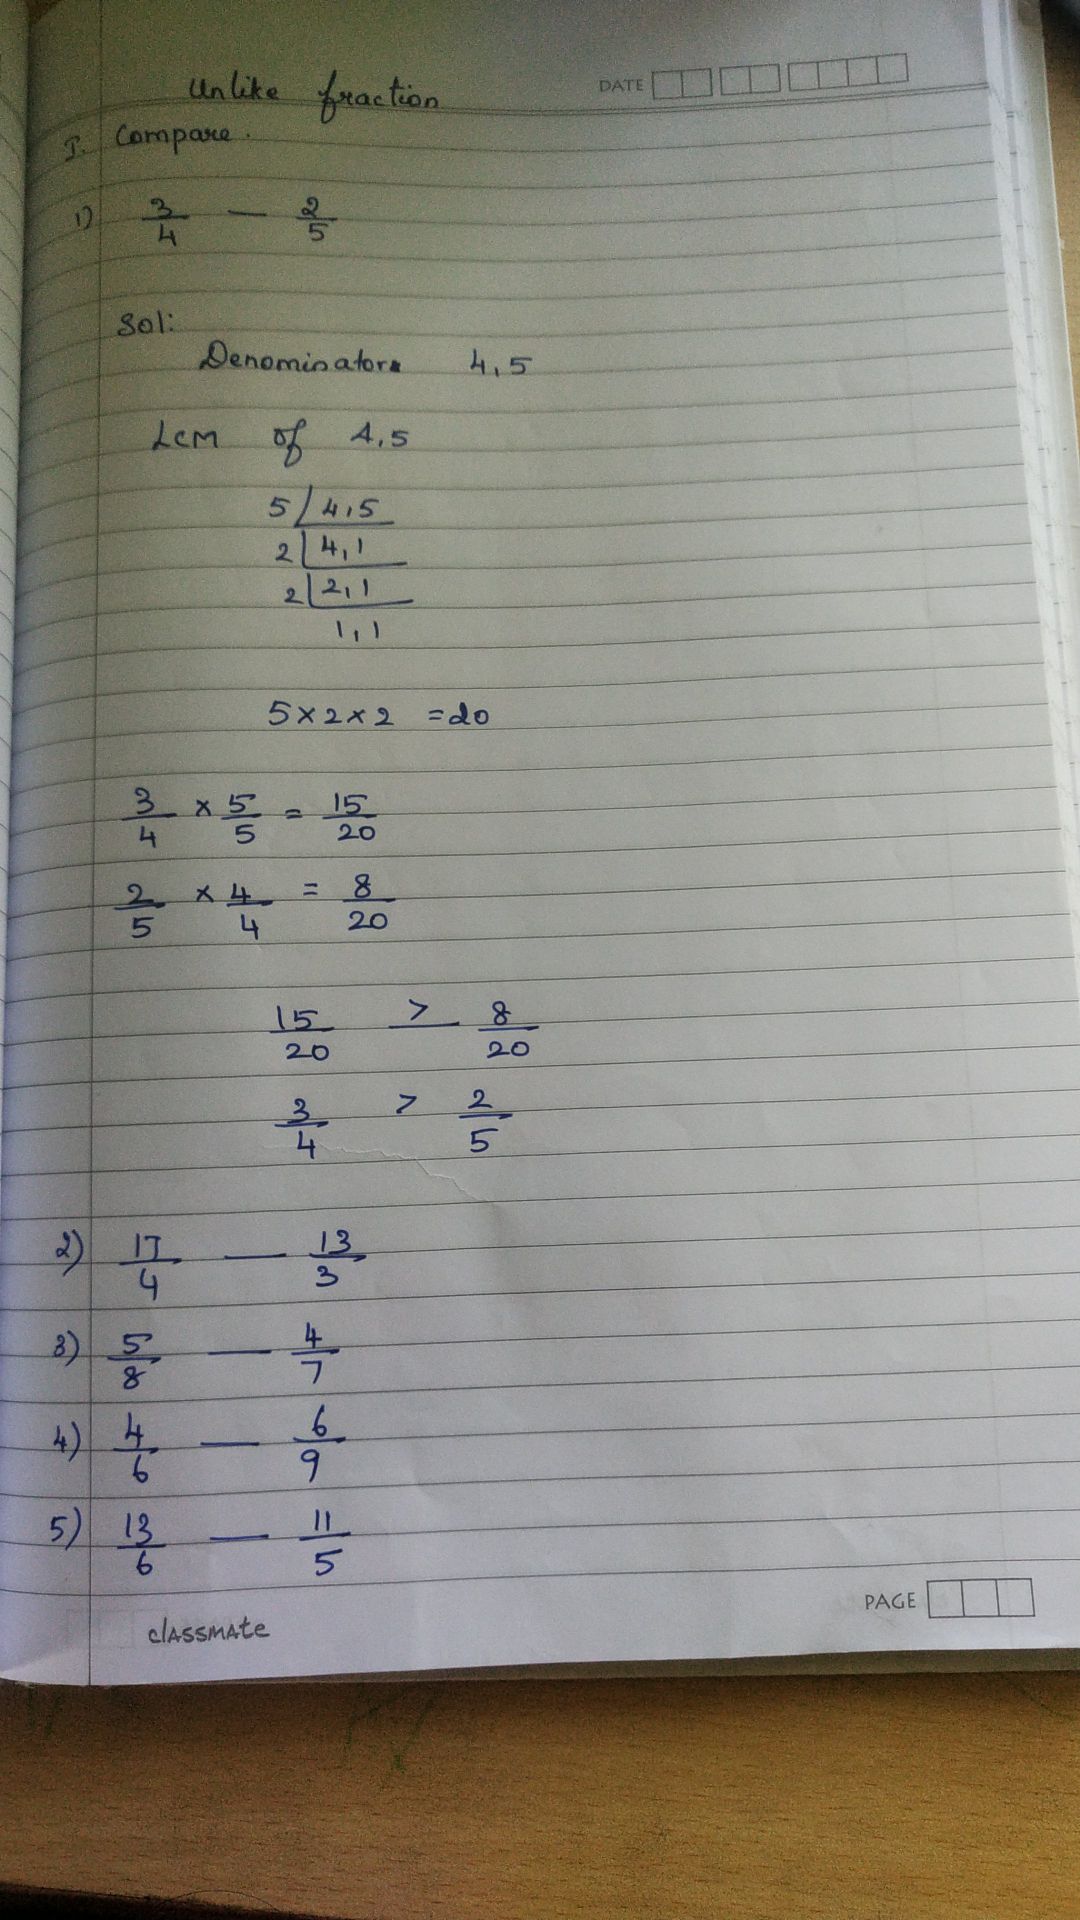 Unlike fraction DATE
I. Compare.
1) 3/4 — 2/5
Sol:
Denominators 4,5
LCM of 4,5
5 | 4,5
2 | 4,1
2 | 2,1
1,1
5×2×2 =20
3/4 × 5/5 = 15/20
2/5 × 4/4 = 8/20
15/20 > 8/20
3/4 > 2/5
2) 17/4 — 13/3
3) 5/8 — 4/7
4) 4/6 — 6/9
5) 13/6 — 11/5
PAGE
classmate